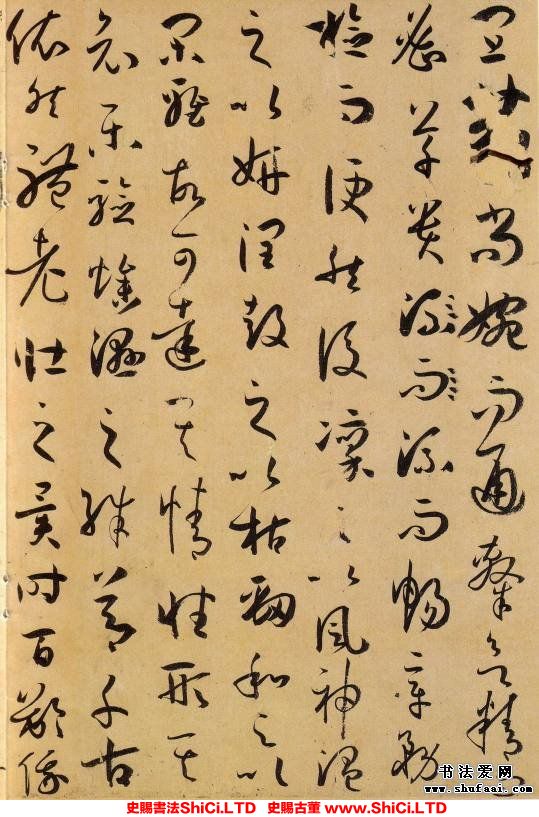 宜篆尚婉而通隸欲精而
密草貴流而流而暢章務
檢而便然後凜之以風神溫
之以妍潤鼓之以枯勁和之以
閑雅故可達其情性形其
哀樂驗燥濕之殊節千古
依然體老壯之異時百齡俄
书法爱网
www.shufaai.com
史賜書法ShiCi.LTD 史賜古董 www.ShiCi.LTD